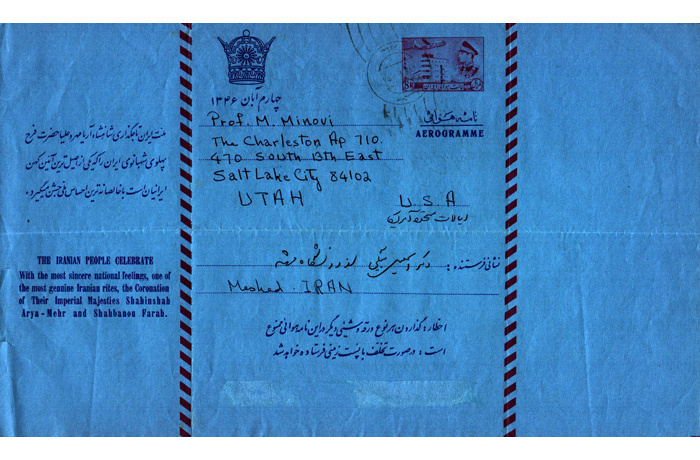 ملت ایران تاجگذاری شاهنشاه آریامهر و علیاحضرت فرح
پهلوی شهبانوی ایران را که یکی از اصیل ترین آئین کهن
ایرانیان است با خالصانه ترین احساس ملی جشن میگیرد.
THE IRANIAN PEOPLE CELEBRATE
With the most sincere national feelings, one of
the most genuine Iranian rites, the Coronation
of Their Imperial Majesties Shahinshah
Arya-Mehr and Shahbanou Farah.
چهارم آبان ۱۳۴۶
نامه هوائی
AEROGRAMME
Prof. M. Minovi
The Charleston Ap 710
470 South 13th East
Salt Lake City 84102
UTAH
U.S.A
ایالات متحده آمریکا
نشانی فرستنده : دکتر دانشگاه مشهد
Meshed. IRAN
اخطار: گذاردن هر نوع ورقه و شیئی دیگر در این نامه هوائی ممنوع
است : در صورت تخلف با پست زمینی فرستاده خواهد شد